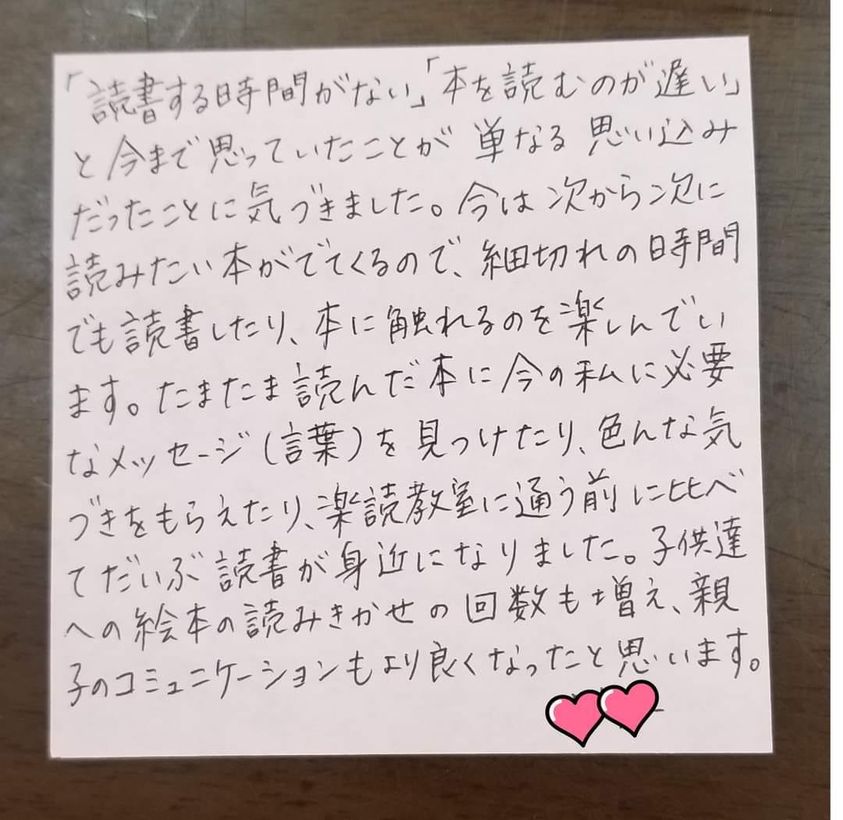 「読書する時間がない」「本を読むのが遅い」
と今まで思っていたことが単なる思い込み
だったことに気づきました。今は次から次に
読みたい本がでてくるので、細切れの時間
でも読書したり、本に触れるのを楽しんでい
ます。たまたま読んだ本に今の私に必要
なメッセージ(言葉)を見つけたり、色んな気
づきをもらえたり、楽読教室に通う前に比べ
てだいぶ読書が身近になりました。子供達
への絵本の読みきかせの回数も増え、親
子のコミュニケーションもより良くなったと思います。